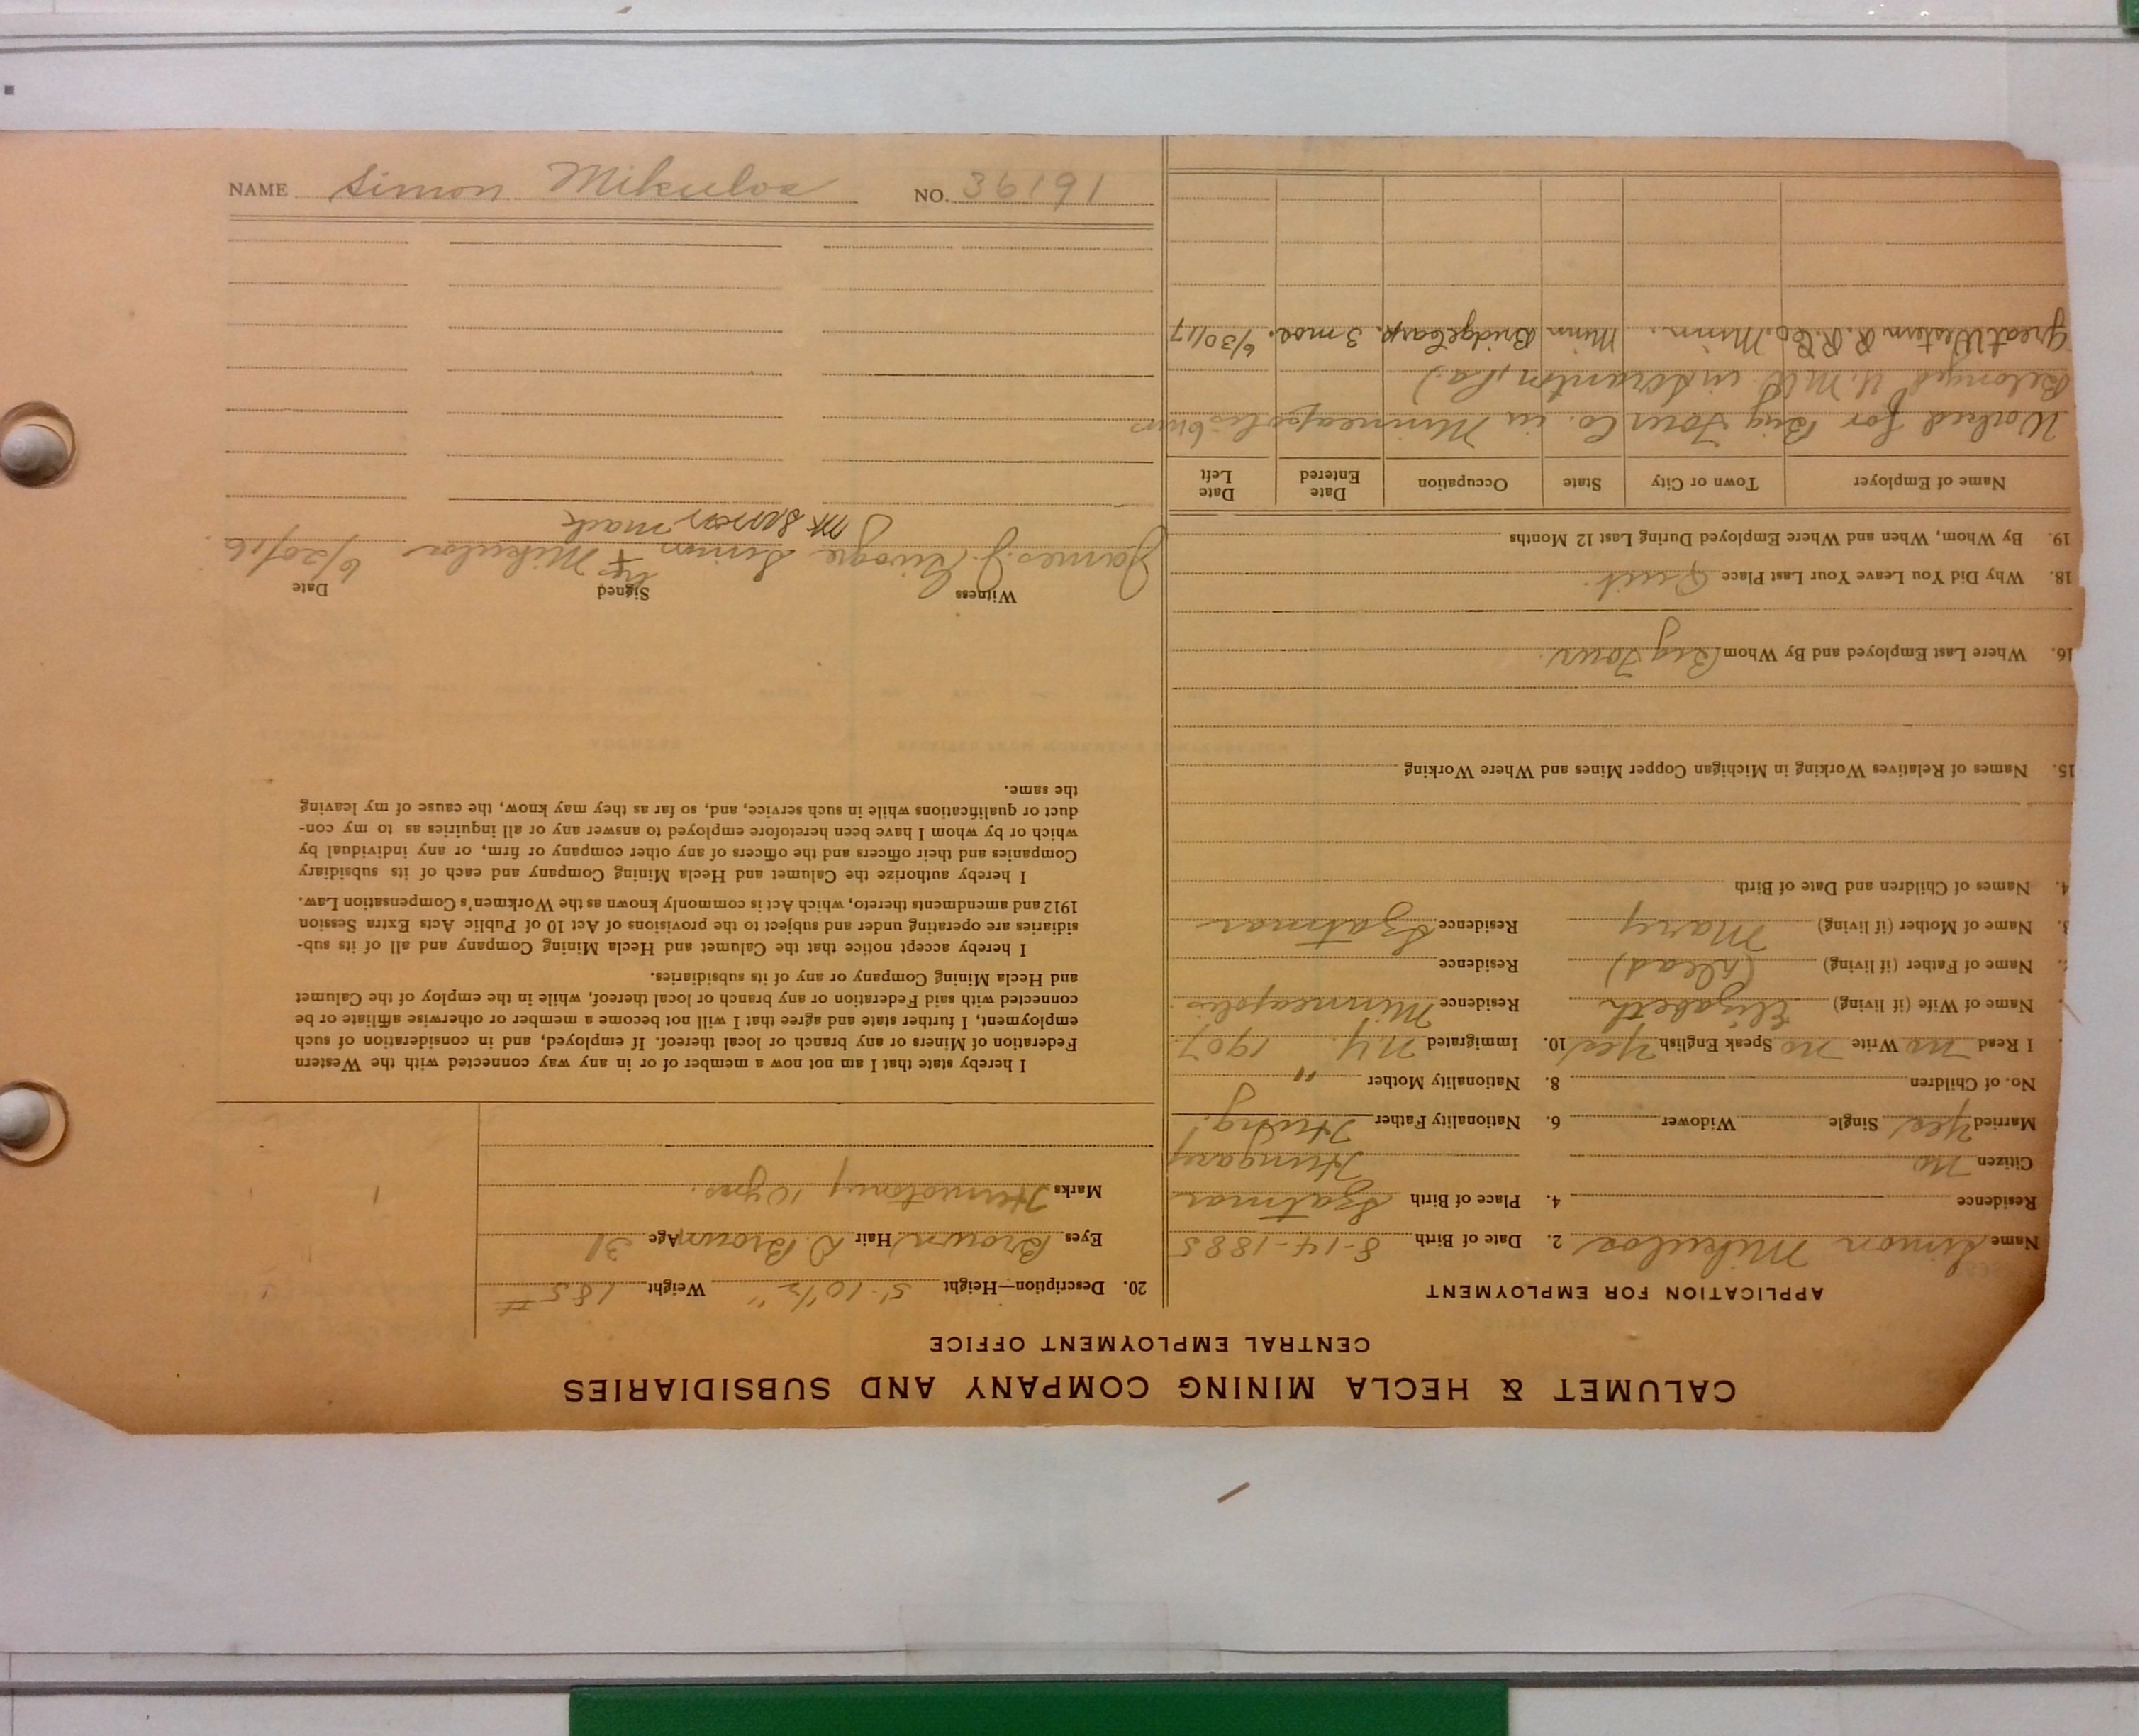 CALUMET & HECLA MINING COMPANY AND SUBSIDIARIES
CENTRAL EMPLOYMENT OFFICE
APPLICATION FOR EMPLOYMENT
Name Simon Mikulos 2. Date of Birth 8-14-1885
Residence 4. Place of Birth Szatmar
Citizen no Hungary
Married Yes Single Widower 6. Nationality Father Hung
No. of Children 8. Nationality Mother "
I Read no Write no Speak English Yes 10. Immigrated N.Y. 1907
Name of Wife (if living) Elizabeth Residence Minneapolis
Name of Father (if living) (Dead) Residence
Name of Mother (if living) Mary Residence Szatmar
4. Names of Children and Date of Birth
15. Names of Relatives Working in Michigan Copper Mines and Where Working
16. Where Last Employed and By Whom Big Four.
18. Why Did You Leave Your Last Place Quit.
19. By Whom, When and Where Employed During Last 12 Months
Name of Employer Town or City State Occupation Date Entered Date Left
Worked for Big Four Co. in Minneapolis 6 mos
Belonged U.M.W. in Scranton, Pa.)
Great Western R.R. Co. Minn. Minn Bridge Carp. 3 mos. 6/30/17
20. Description—Height 5'-10½" Weight 185 #
Eyes Brown Hair D. Brown Age 31
Marks 10 yrs.
I hereby state that I am not now a member of or in any way connected with the Western
Federation of Miners or any branch or local thereof. If employed, and in consideration of such
employment, I further state and agree that I will not become a member or otherwise affiliate or be
connected with said Federation or any branch or local thereof, while in the employ of the Calumet
and Hecla Mining Company or any of its subsidiaries.
I hereby accept notice that the Calumet and Hecla Mining Company and all of its sub-
sidiaries are operating under and subject to the provisions of Act 10 of Public Acts Extra Session
1912 and amendments thereto, which Act is commonly known as the Workmen's Compensation Law.
I hereby authorize the Calumet and Hecla Mining Company and each of its subsidiary
Companies and their officers and the officers of any other company or firm, or any individual by
which or by whom I have been heretofore employed to answer any or all inquiries as to my con-
duct or qualifications while in such service, and, so far as they may know, the cause of my leaving
the same.
Witness Signed Date
his
James J. Simon + Mikulos 6/20/16
mark
NAME Simon Mikulos NO. 36191